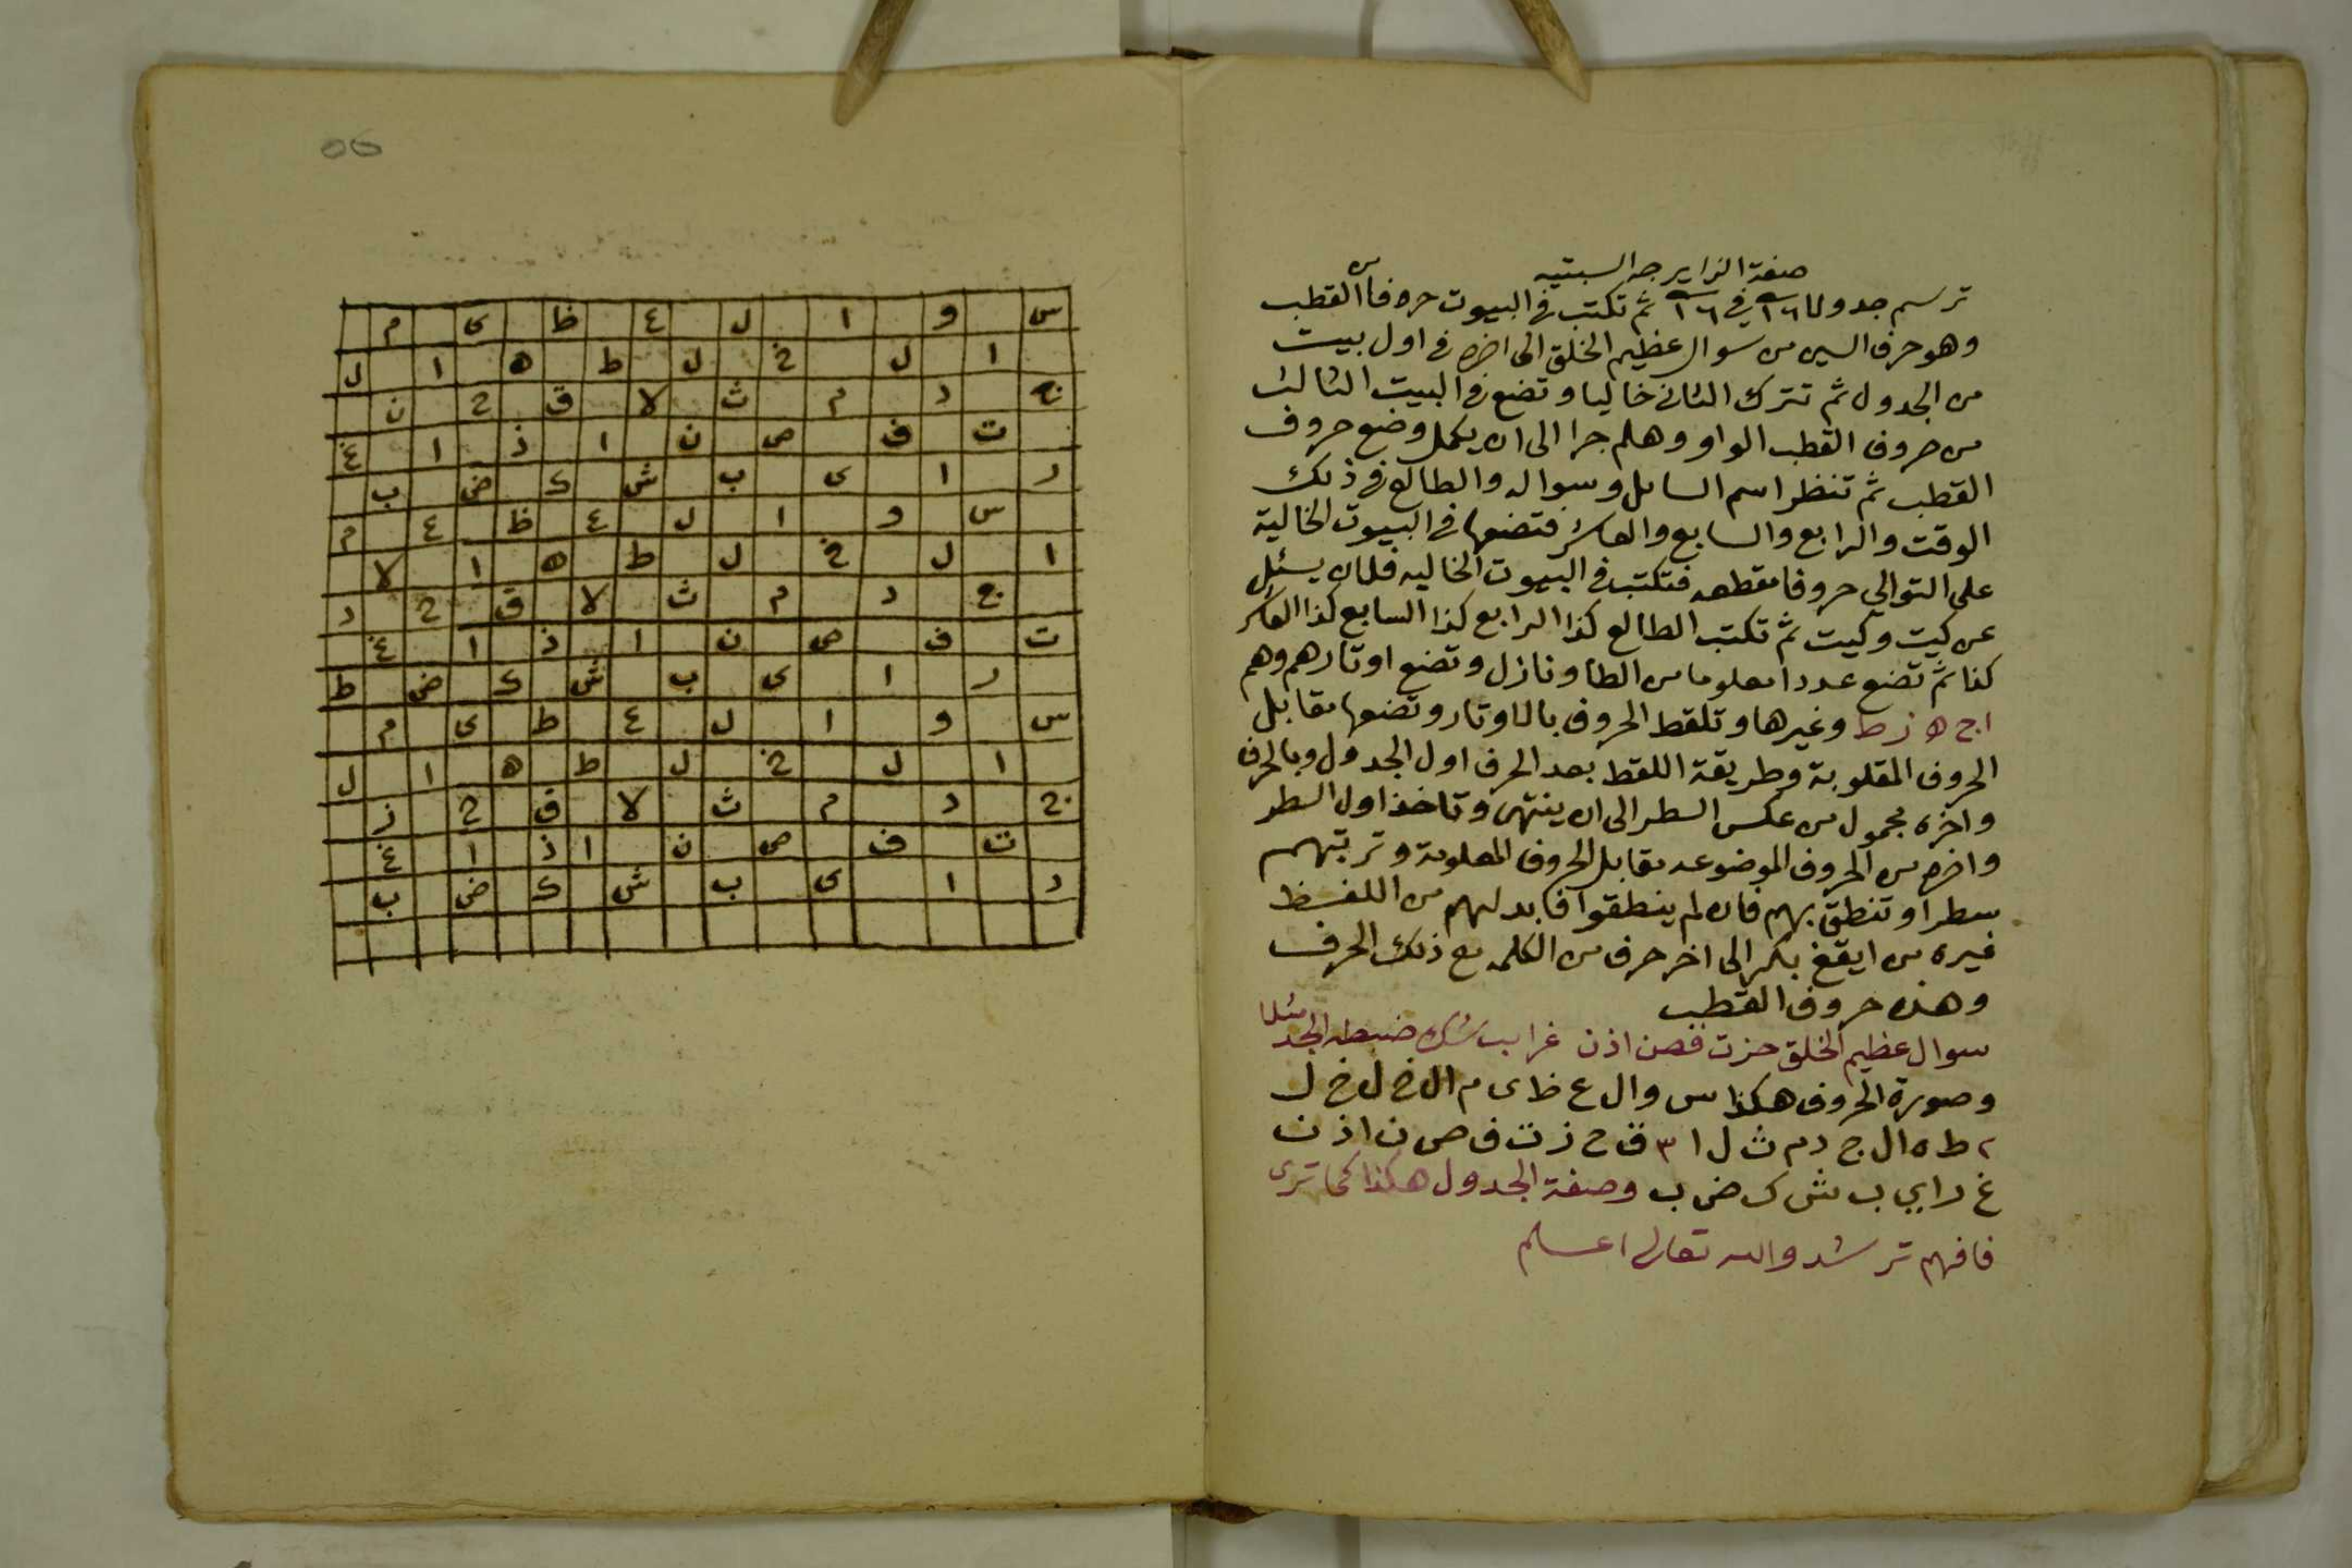 صفة الزايرجه السبتيه
ترسم جدولا ١٦ في ١٦ ثم تكتب في البيوت حروفا س القطب
وهو حرف السين من سوال عظيم الخلق الى اخره في اول بيت
من الجدول ثم تترك الثاني خاليا وتضع في البيت الثالث
من حروف القطب الواو وهلم جرا الى ان يكمل وضع حروف
القطب ثم تنظر اسم السايل وسواله والطالع في ذلك
الوقت والرابع والسابع والعاشر فتضعها في البيوت الخالية
على التوالي حروفا مقطعه فتكتب في البيوت الخاليه فلان يسئل
عن كيت وكيت ثم تكتب الطالع كذا الرابع كذا السابع كذا العاشر
كذا ثم تضع عددا معلوما من الطا ونازل وتضع اوتارهم وهم
ا ج ه ز ط وغيرها وتلقط الحروف بالاوتار وتضعها مقابل
الحروف المقلوبة وطريقة اللقط بعد الحرف اول الجدول وبالحرف
واخره مجمول من عكس السطر الى ان ينتهى وتاخذ اول السطر
واخره من الحروف الموضوعه مقابل الحروف المعلومة وترتبهم
سطرا وتنطق بهم فان لم ينطقوا فابدلهم من اللفظ
غيره من ايقغ بكر الى اخر حرف من الكلمه مع ذلك الحرف
وهذه حروف القطب
سوال عظيم الخلق حزت فصن اذن غرايب شك ضبطه الجد مثلا
وصورة الحروف هكذا س و ا ل ع ظ ى م ا ل خ ل خ ل
٢ ط ه ا ل ج د م ث ل ا ٣ ق ح ز ت ف ص ن ا ذ ن
غ ر ا ي ب ش ك ض ب وصفة الجدول هكذا كما ترى
فافهم ترشد والله تعالى اعلم
س و ا ل ع ظ ى م
ا ل خ ل ط ه ا ل
ج د م ث لا ق ح ن
ت ف ص ن ا ذ ا غ
ر ا ى ب ش ك ض ب
س و ا ل ع ظ ع م
ا ل خ ل ط ه ا لا
ج د م ث لا ق ح د
ت ف ص ن ا ذ ا غ
ر ا ى ب ش ك ض ط
س و ا ل ع ط ى م
ا ل خ ل ط ه ا ل
ج د م ث لا ق ح ز
ت ف ص ن ا ذ ا غ
د ا ى ب ش ك ض ب